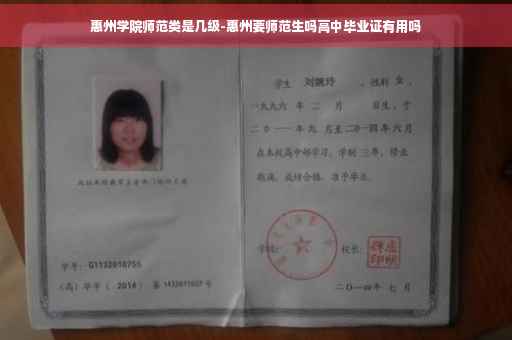 惠州学院师范类是几级-惠州要师范生吗高中毕业证有用吗
学生 刘婉玲 ,性别 女 ,
一九九六 年 二 月 日生,于
二〇一一 年 九 月至 二〇一四 年 六 月
在本校高中部学习,学制 三 年,修业
期满,成绩合格,准予毕业。
学号: G1132010755
学校:
校长:
(高)毕字( 2014 )第 1432011037 号
二〇一四年 七 月